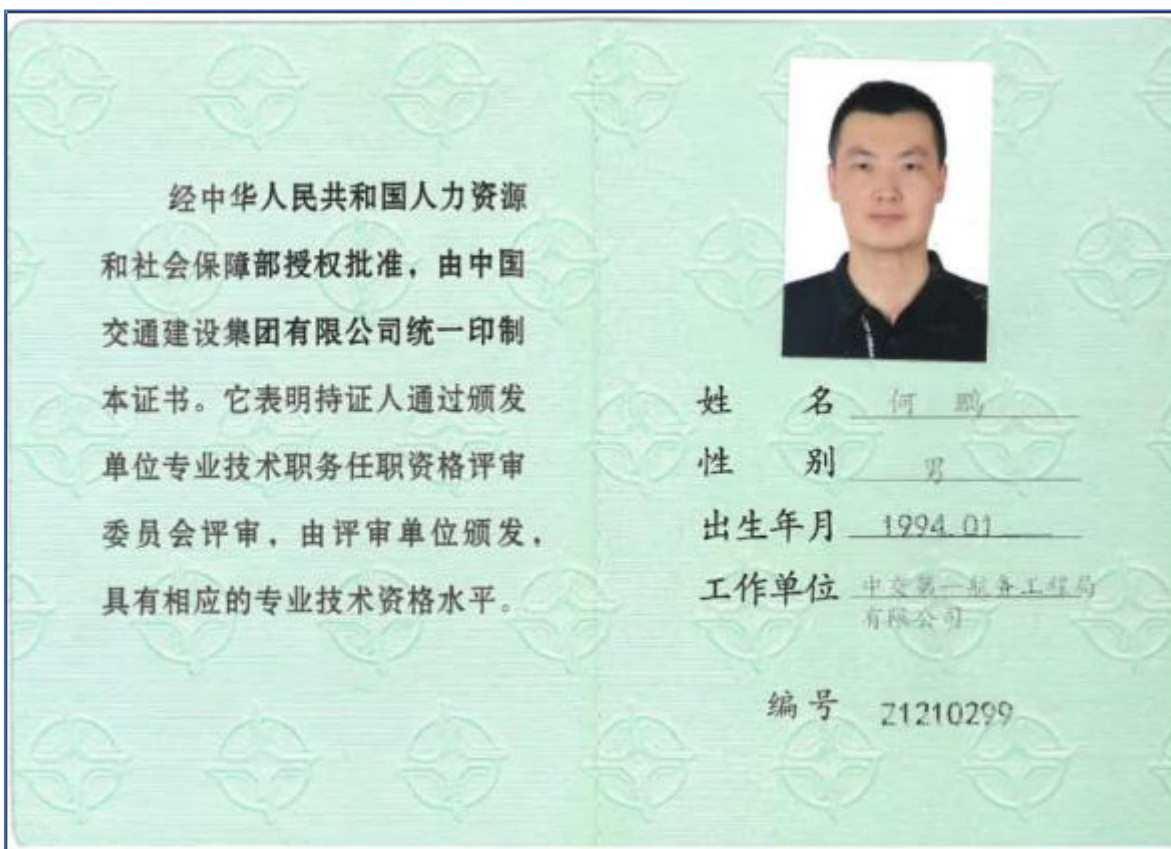 经中华人民共和国人力资源
和社会保障部授权批准，由中国
交通建设集团有限公司统一印制
本证书。它表明持证人通过颁发
单位专业技术职务任职资格评审
委员会评审，由评审单位颁发，
具有相应的专业技术资格水平。
姓 名 何 鹏
性 别 男
出生年月 1994.01
工作单位 中交第一航务工程局
有限公司
编号 Z1210299